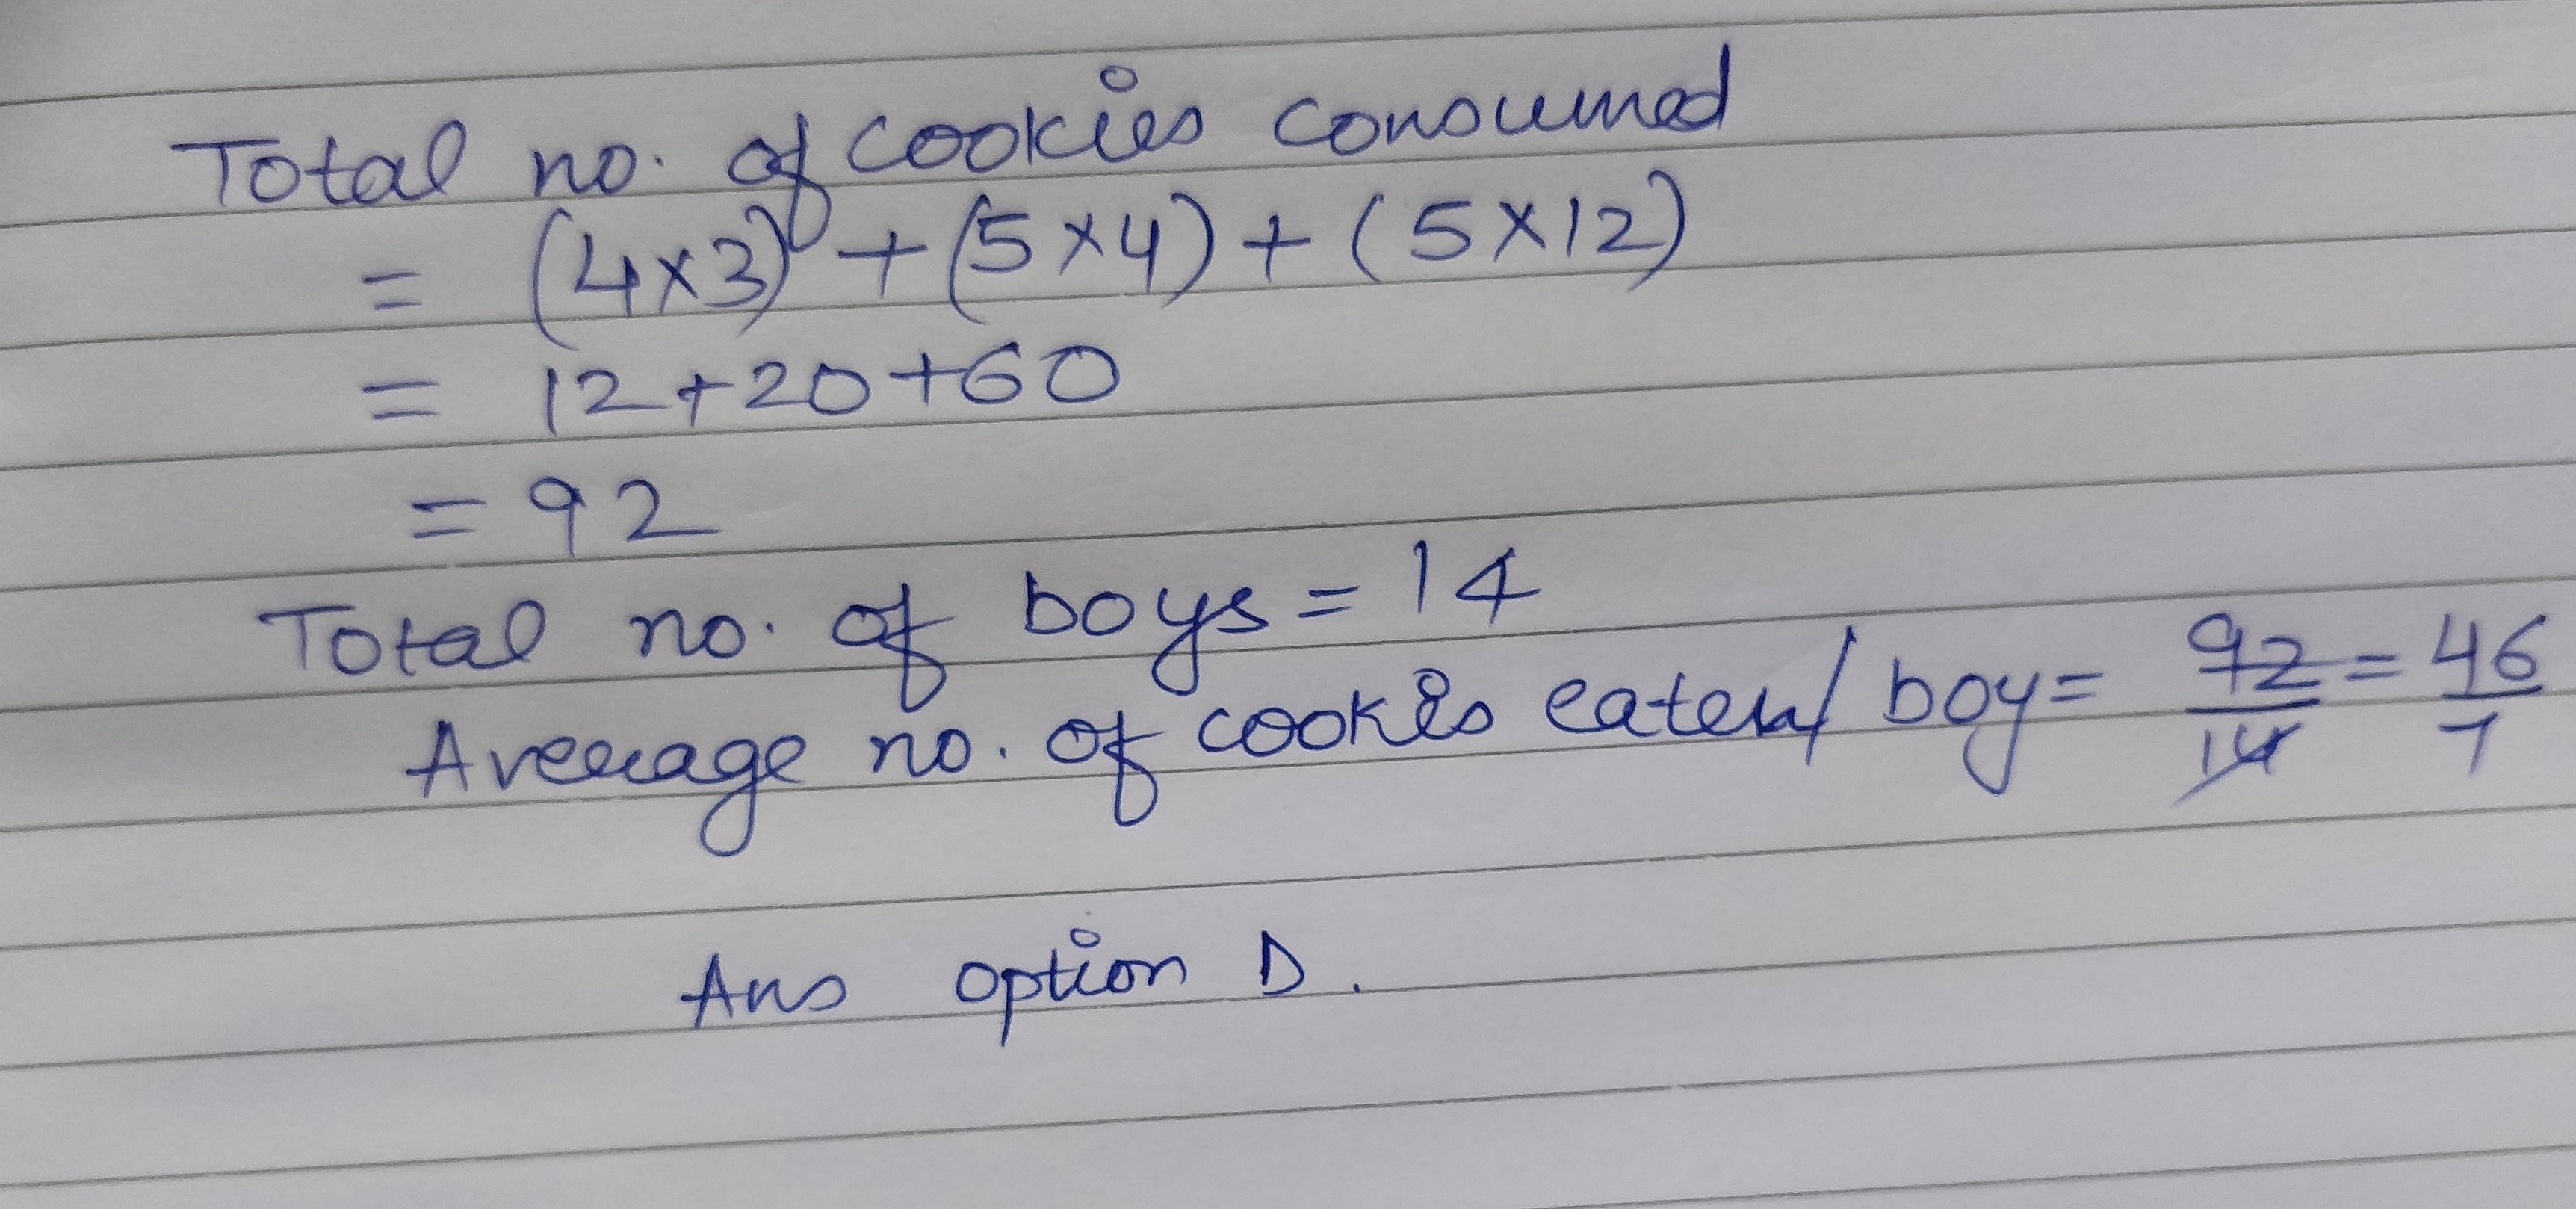 Total no. of cookies consumed
= (4x3) + (5x4) + (5x12)
= 12+20+60
= 92
Total no. of boys = 14
Average no. of cookies eaten/boy = 92/14 = 46/7
Ans option D.